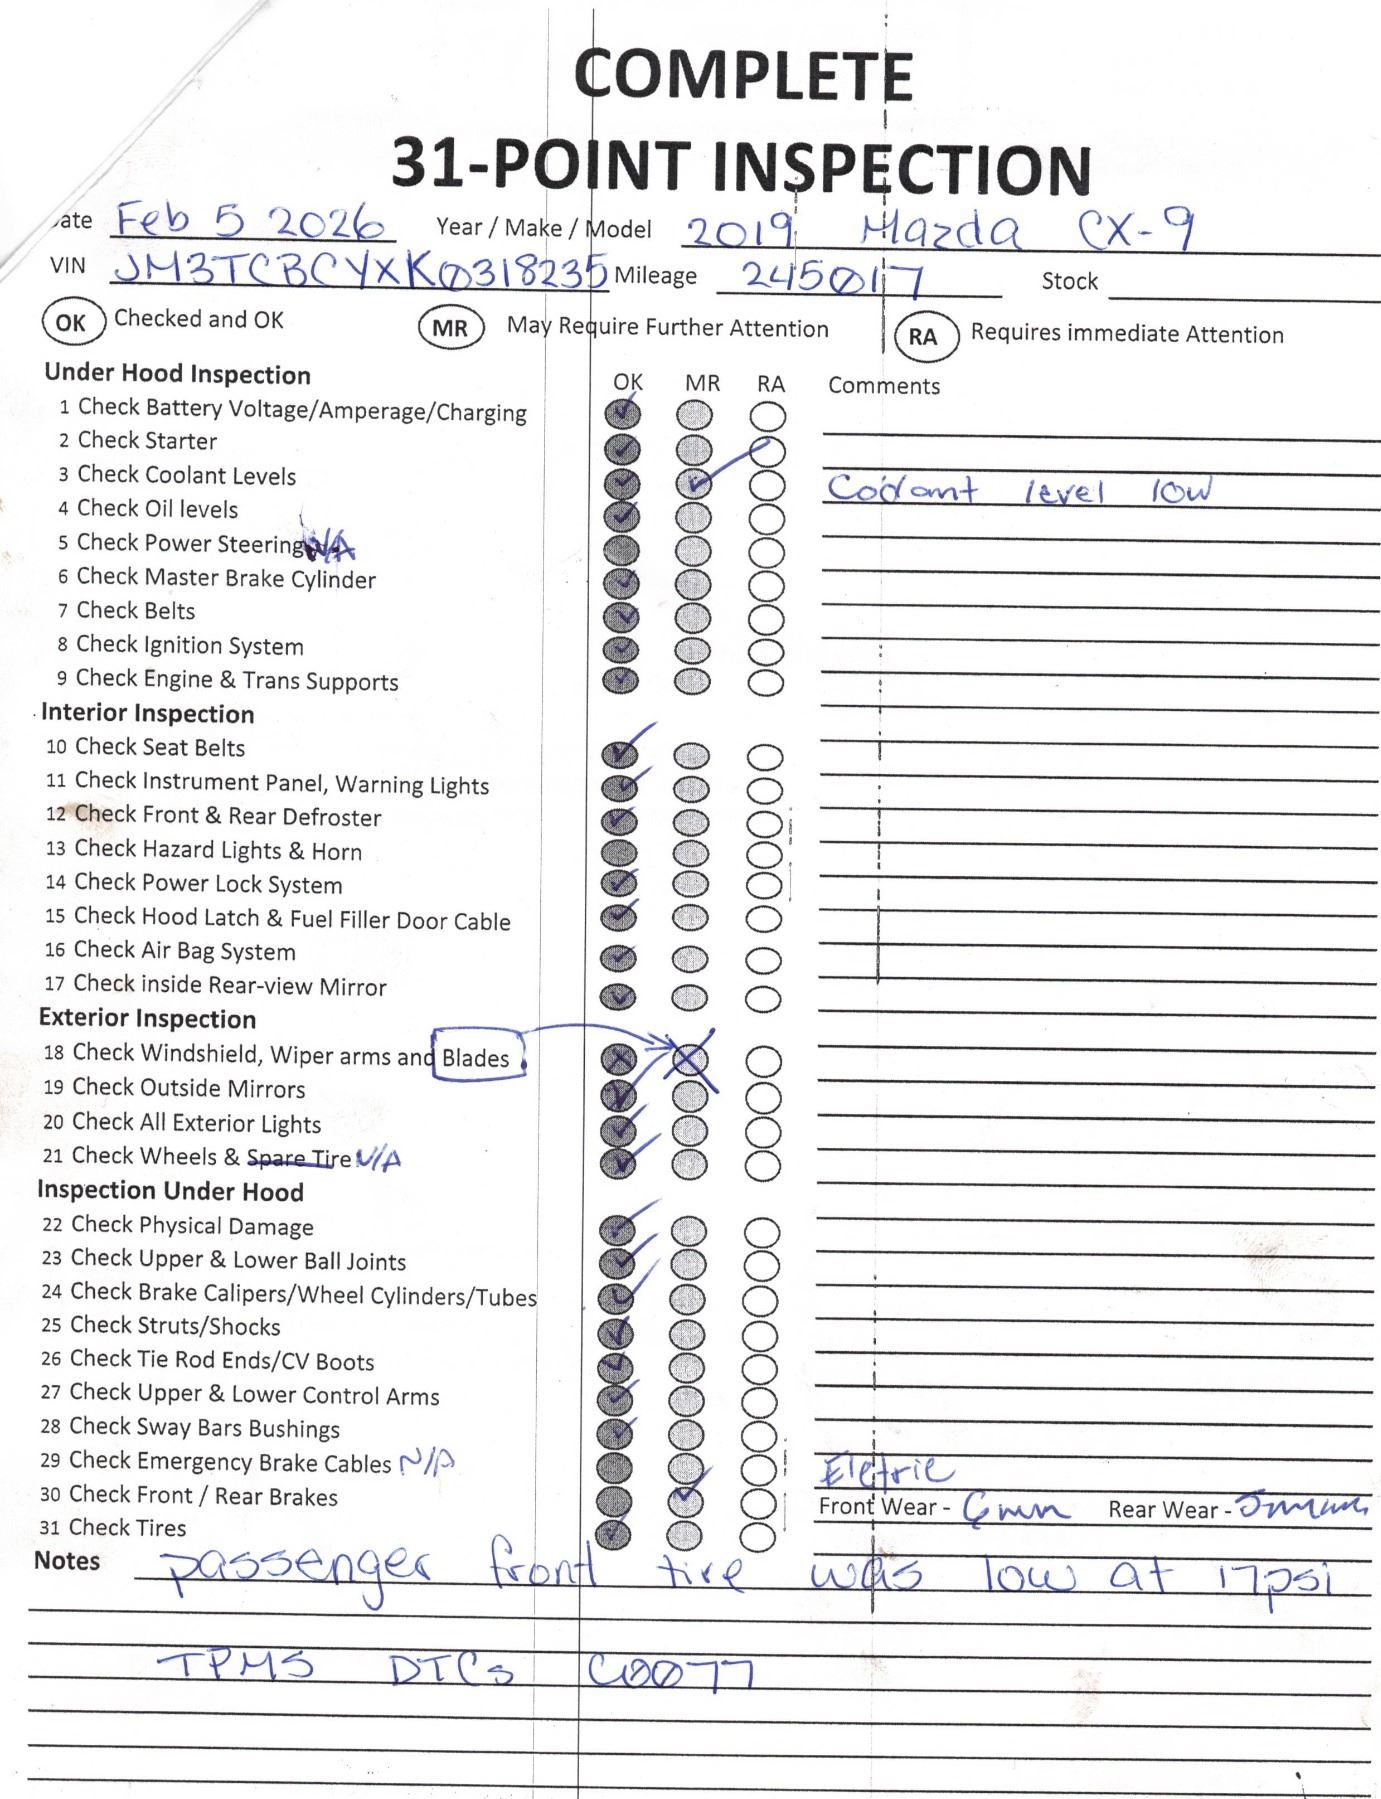 COMPLETE
31-POINT INSPECTION
ate Feb 5 2026 Year / Make / Model 2019 Mazda CX-9
VIN JM3TCBCYXK0318235 Mileage 245017 Stock
OK Checked and OK MR May Require Further Attention RA Requires immediate Attention
Under Hood Inspection OK MR RA Comments
1 Check Battery Voltage/Amperage/Charging
2 Check Starter
3 Check Coolant Levels Coolant level low
4 Check Oil levels
5 Check Power Steering N/A
6 Check Master Brake Cylinder
7 Check Belts
8 Check Ignition System
9 Check Engine & Trans Supports
Interior Inspection
10 Check Seat Belts
11 Check Instrument Panel, Warning Lights
12 Check Front & Rear Defroster
13 Check Hazard Lights & Horn
14 Check Power Lock System
15 Check Hood Latch & Fuel Filler Door Cable
16 Check Air Bag System
17 Check inside Rear-view Mirror
Exterior Inspection
18 Check Windshield, Wiper arms and Blades
19 Check Outside Mirrors
20 Check All Exterior Lights
21 Check Wheels & Spare Tire N/A
Inspection Under Hood
22 Check Physical Damage
23 Check Upper & Lower Ball Joints
24 Check Brake Calipers/Wheel Cylinders/Tubes
25 Check Struts/Shocks
26 Check Tie Rod Ends/CV Boots
27 Check Upper & Lower Control Arms
28 Check Sway Bars Bushings
29 Check Emergency Brake Cables N/A Eletric
30 Check Front / Rear Brakes Front Wear - 6mm Rear Wear - 5mm
31 Check Tires
Notes passenger front tire was low at 17psi
TPMS DTCs C0077